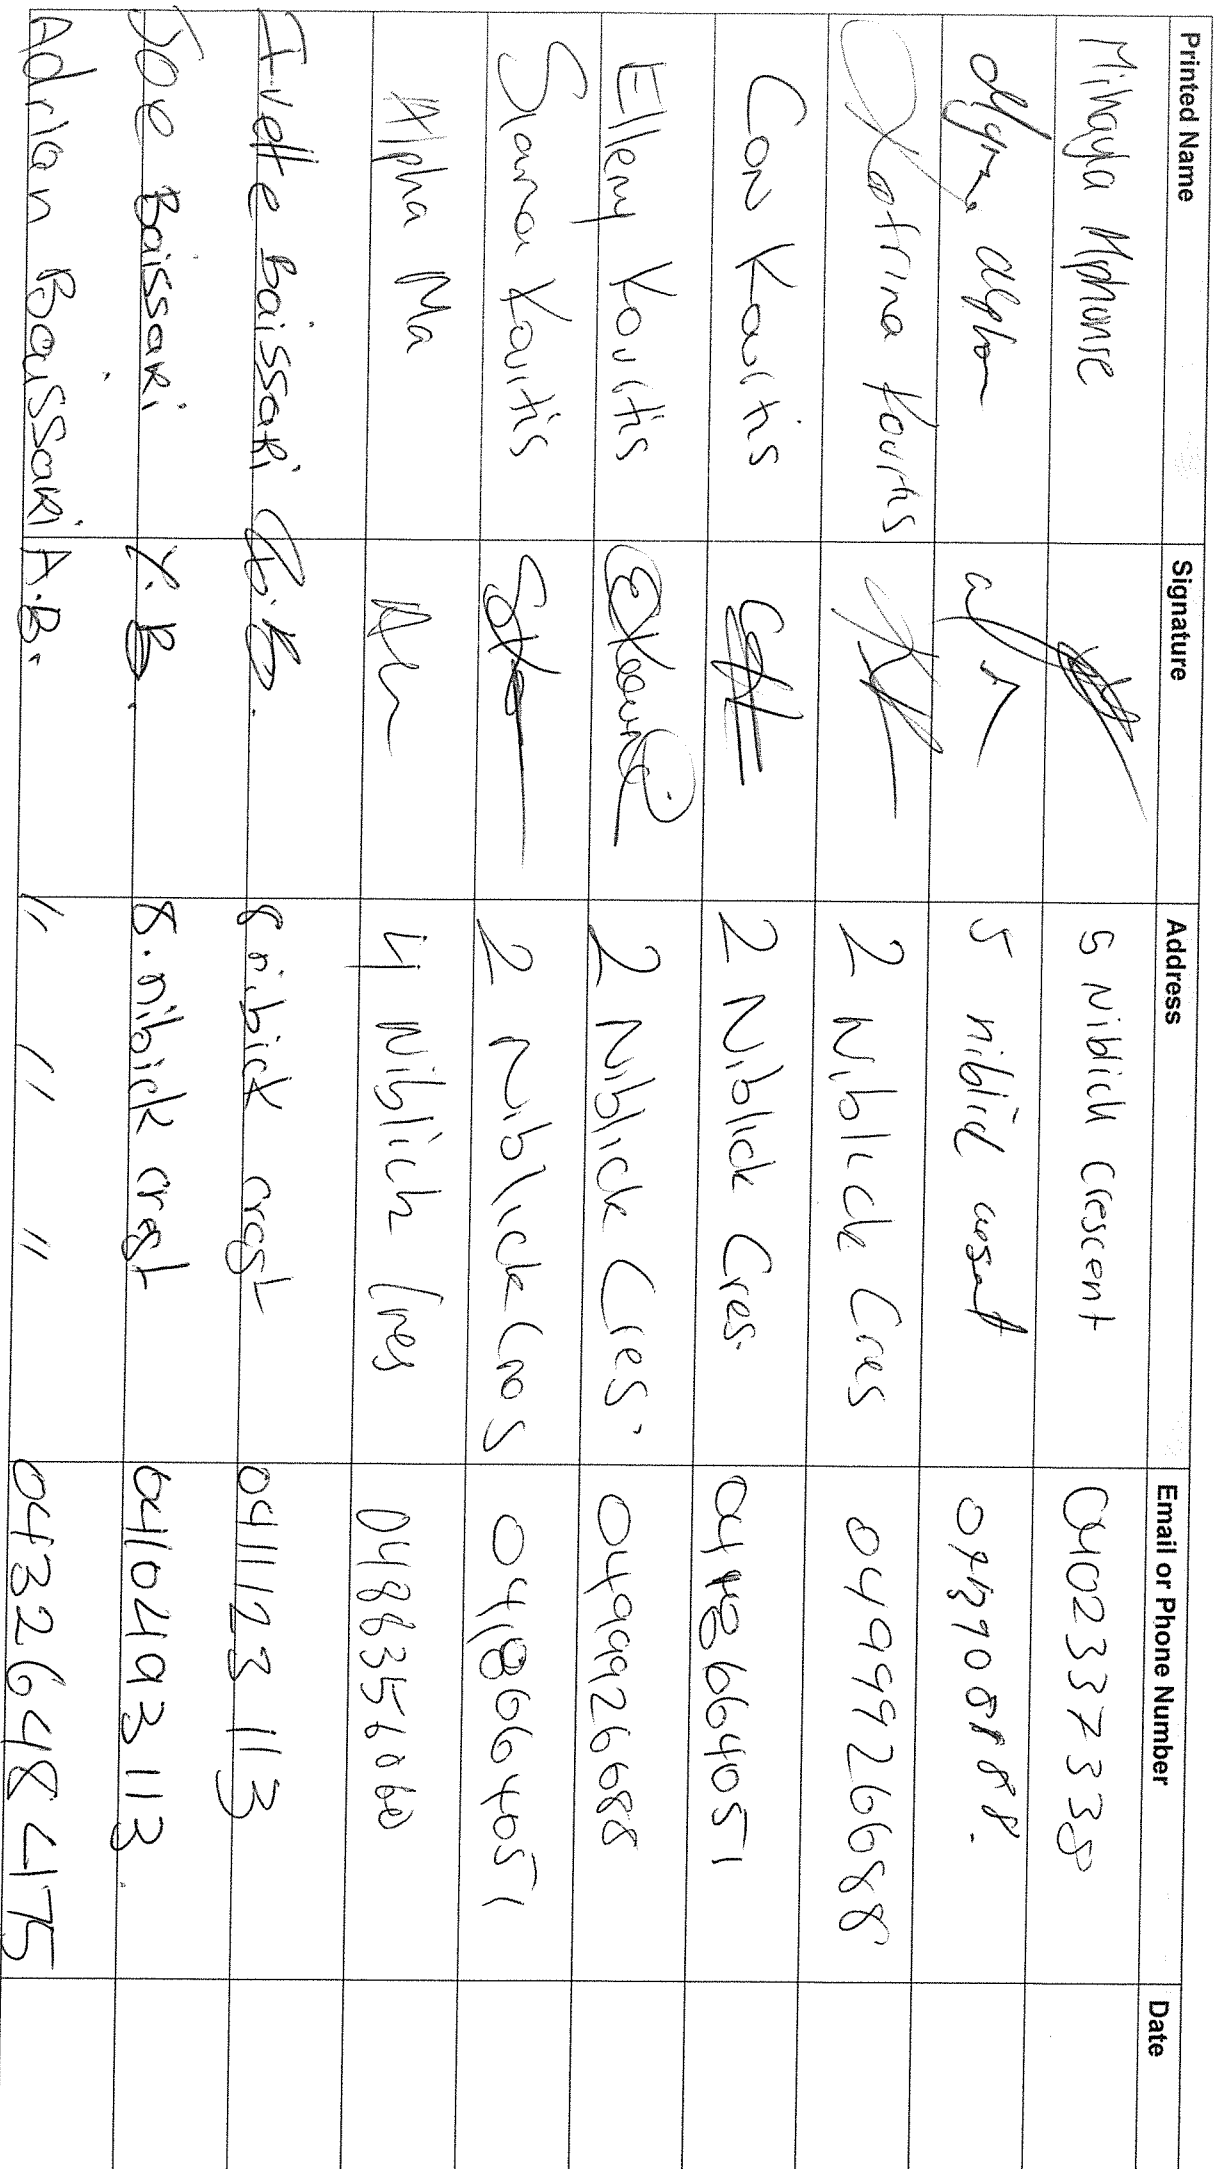 Printed Name Signature Address Email or Phone Number Date
Mihayla Alphonse 5 Niblick Crescent 0402337338
5 niblick
Katrina Kourtis 2 Niblick Cres 0499926688
Con Kourtis 2 Niblick Cres. 0418664051
Elleny Kourtis EKourtis 2 Niblick Cres. 0499926688
Siana Kourtis 2 Niblick Cres 0418664051
Alpha Ma 4 Niblich Cres 0488356060
Ivette Baissari 8 nibick crest 041123113
Joe Baissari Y.B. 8. nibick crest 0410493113
Adrian Baissari A.B. " " " 0432648475